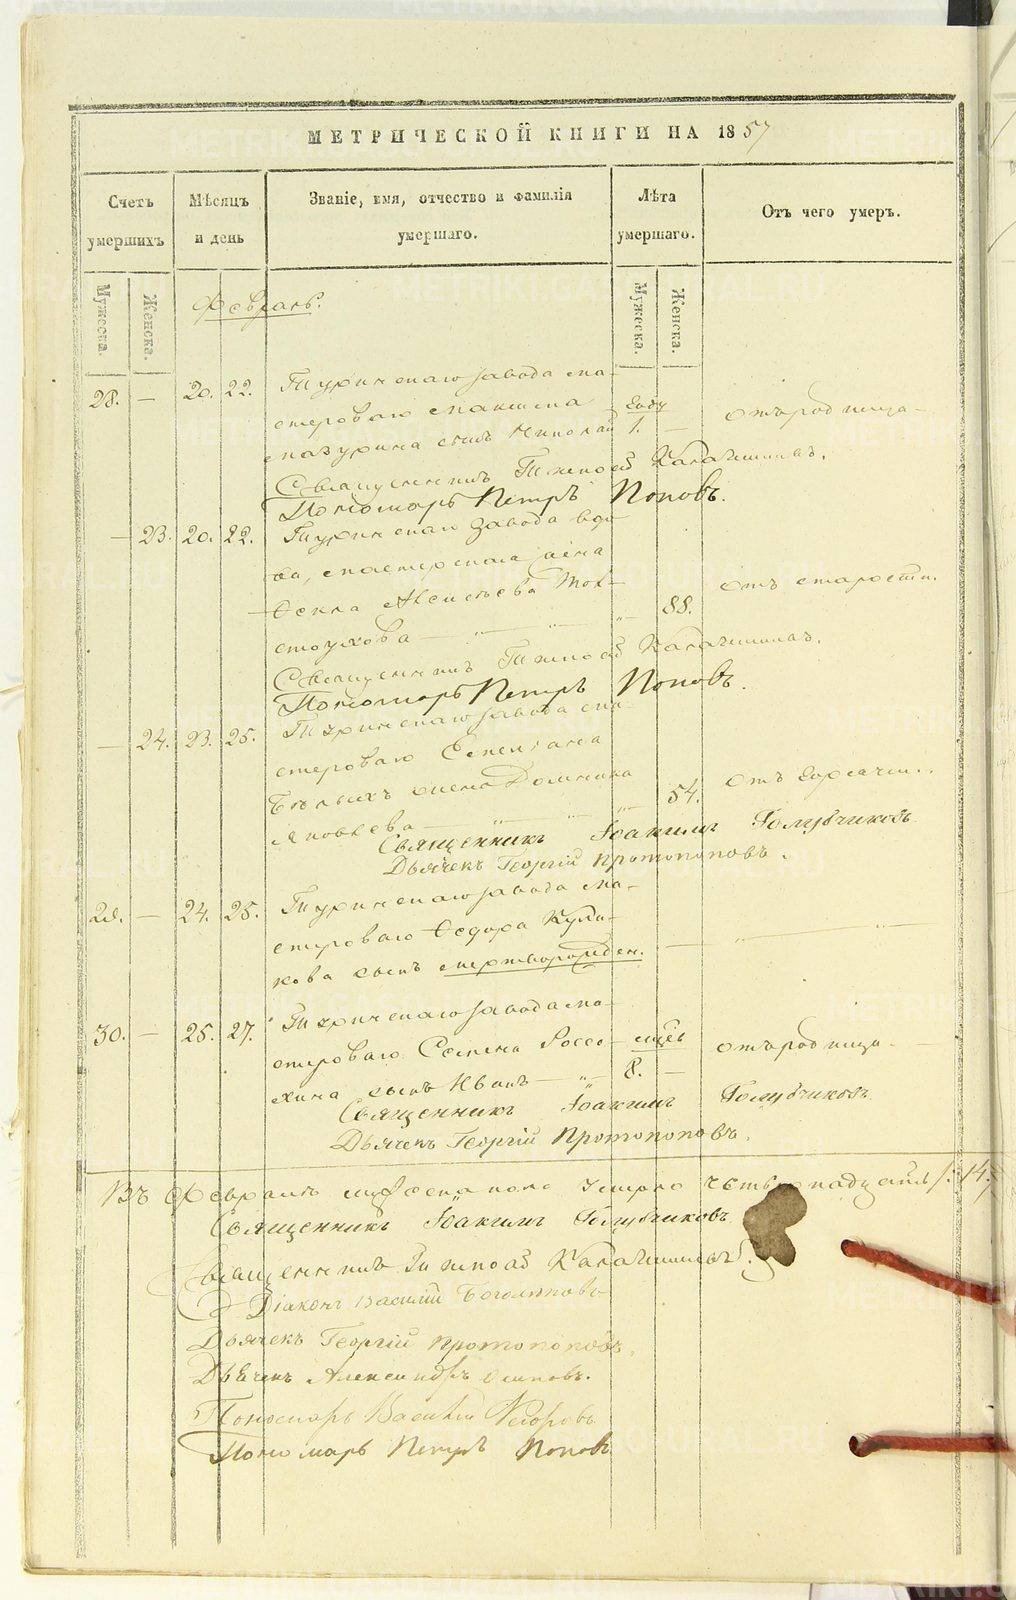 МЕТРИЧЕСКОЙ КНИГИ НА 1857
Счетъ умершихъ
Мѣсяцъ и день
Званіе, имя, отчество и фамилія умершаго.
Лѣта умершаго.
Отъ чего умеръ.
Мужеска. Женска.
Мужеска. Женска.
Февраль.
28. — 20. 22. Туринскаго завода ма-
стероваго Максима году отъ родимца —
Мазурина сынъ Николай 1. —
Священникъ Тимофей
Пономарь Петръ Поповъ.
— 23. 20. 22. Туринскаго завода вдо-
ва, мастерскаго жена
Ѳекла Моисеева Тол- отъ старости.
стоухова — „ — „ — „ — 88.
Священникъ Тимофей
Пономарь Петръ Поповъ.
— 24. 23. 25. Туринскаго завода ма-
стероваго
Бѣлыхъ жена Домника отъ горячки.
Яковлева — „ — 54.
Священникъ Іоакимъ Голубчиковъ
Дьячекъ Георгій Протопоповъ.
29. — 24. 25. Туринскаго завода ма-
стероваго Ѳедора Кула-
кова сынъ мертворожден. — „ — „ —
30. — 25. 27. Туринскаго завода ма-
стероваго Семена Россо- мцѣв отъ родимца —
хина сынъ Иванъ — „ — 8. —
Священникъ Іоакимъ Голубчиковъ
Дьячекъ Георгій Протопоповъ.
Въ Февралѣ мцѣ пола умерло четырнадцать /: 14.
Священникъ Іоакимъ Голубчиковъ
Священникъ Тимофей
Діаконъ Василій Боголѣповъ
Дьячекъ Георгій Протопоповъ.
Дьячекъ Александръ Осиповъ.
Пономарь Василій
Пономарь Петръ Поповъ